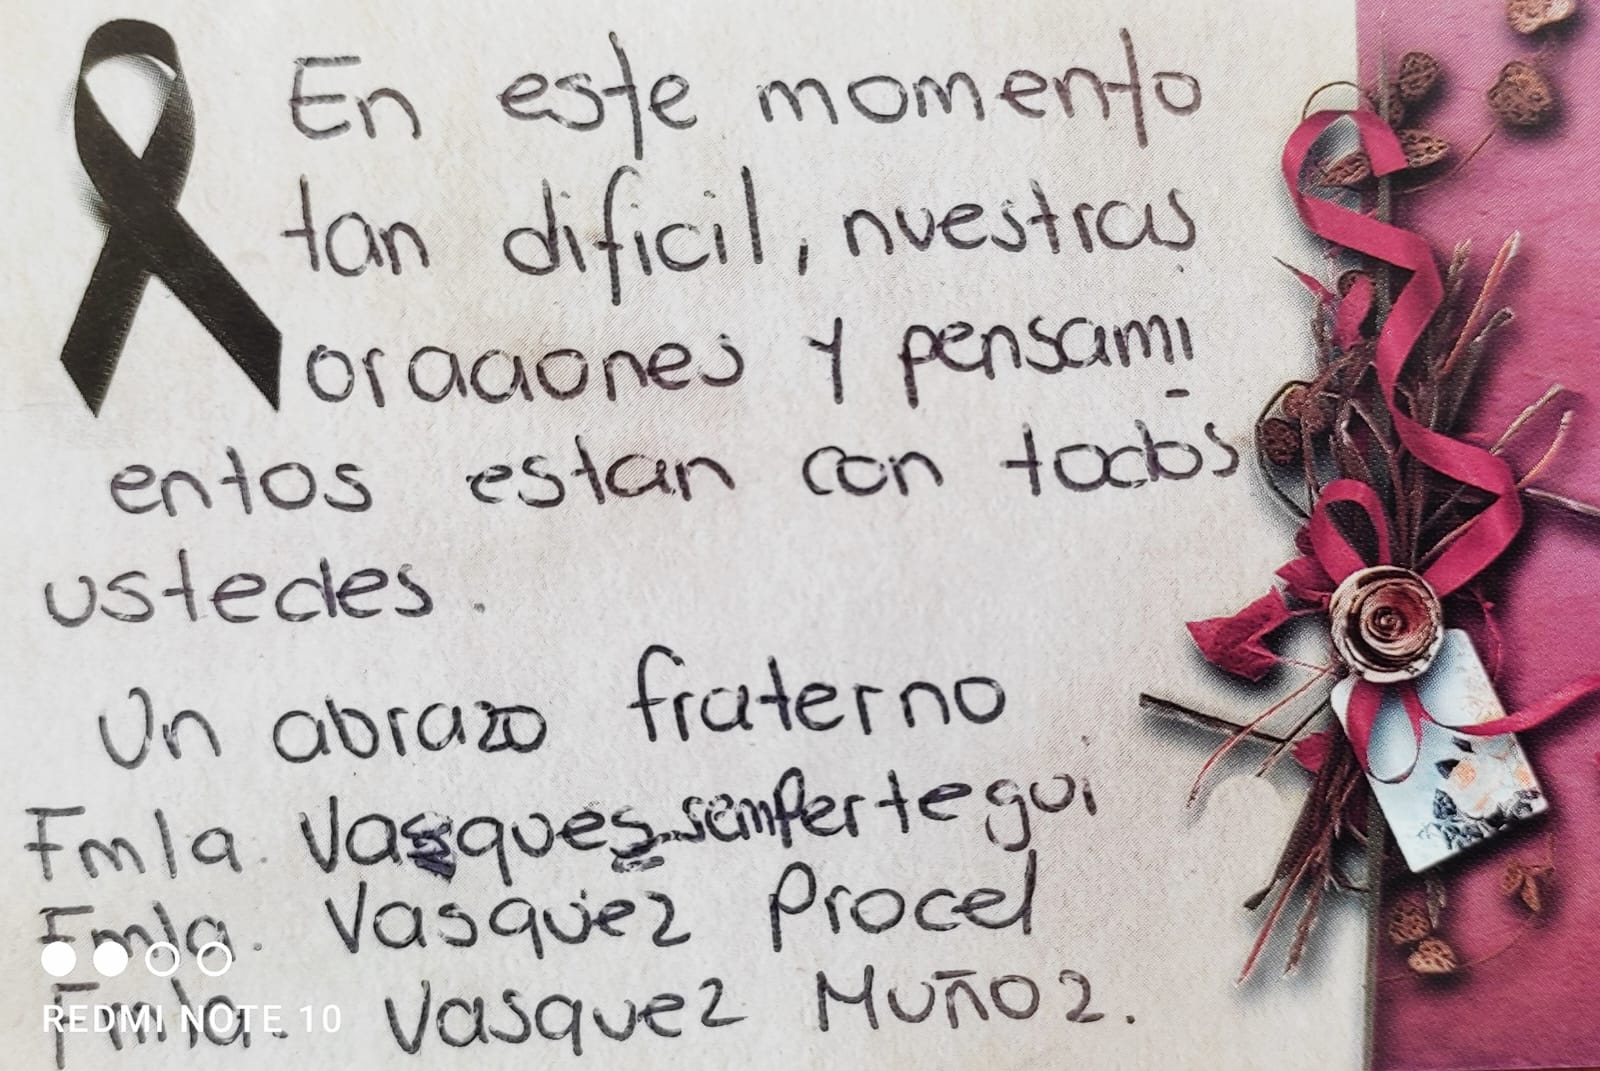 En este momento
tan dificil, nuestras
oraciones y pensami
entos estan con todos
ustedes.
Un abrazo fraterno
Fmla. Vasques sempertegui
Fmla. Vasquez Procel
Fmla. Vasquez Muñoz.
REDMI NOTE 10